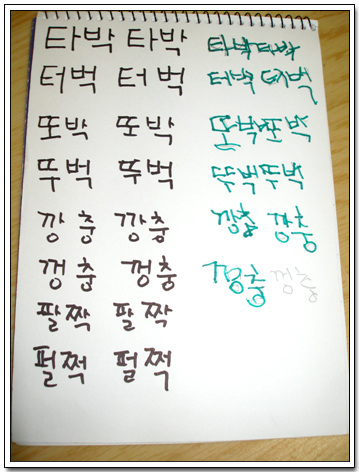 타박 타박 타박타박
터벅 터벅 터벅 터벅
또박 또박 또박또박
뚜벅 뚜벅 뚜벅뚜벅
깡충 깡충 깡충 깡충
껑충 껑충 껑충 껑충
팔짝 팔짝
펄쩍 펄쩍